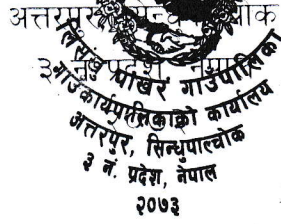 लिसंखु पाखर गाउँपालिका
गाउँ कार्यपालिकाको कार्यालय
अत्तरपुर, सिन्धुपाल्चोक
३ नं. प्रदेश, नेपाल
२०७३